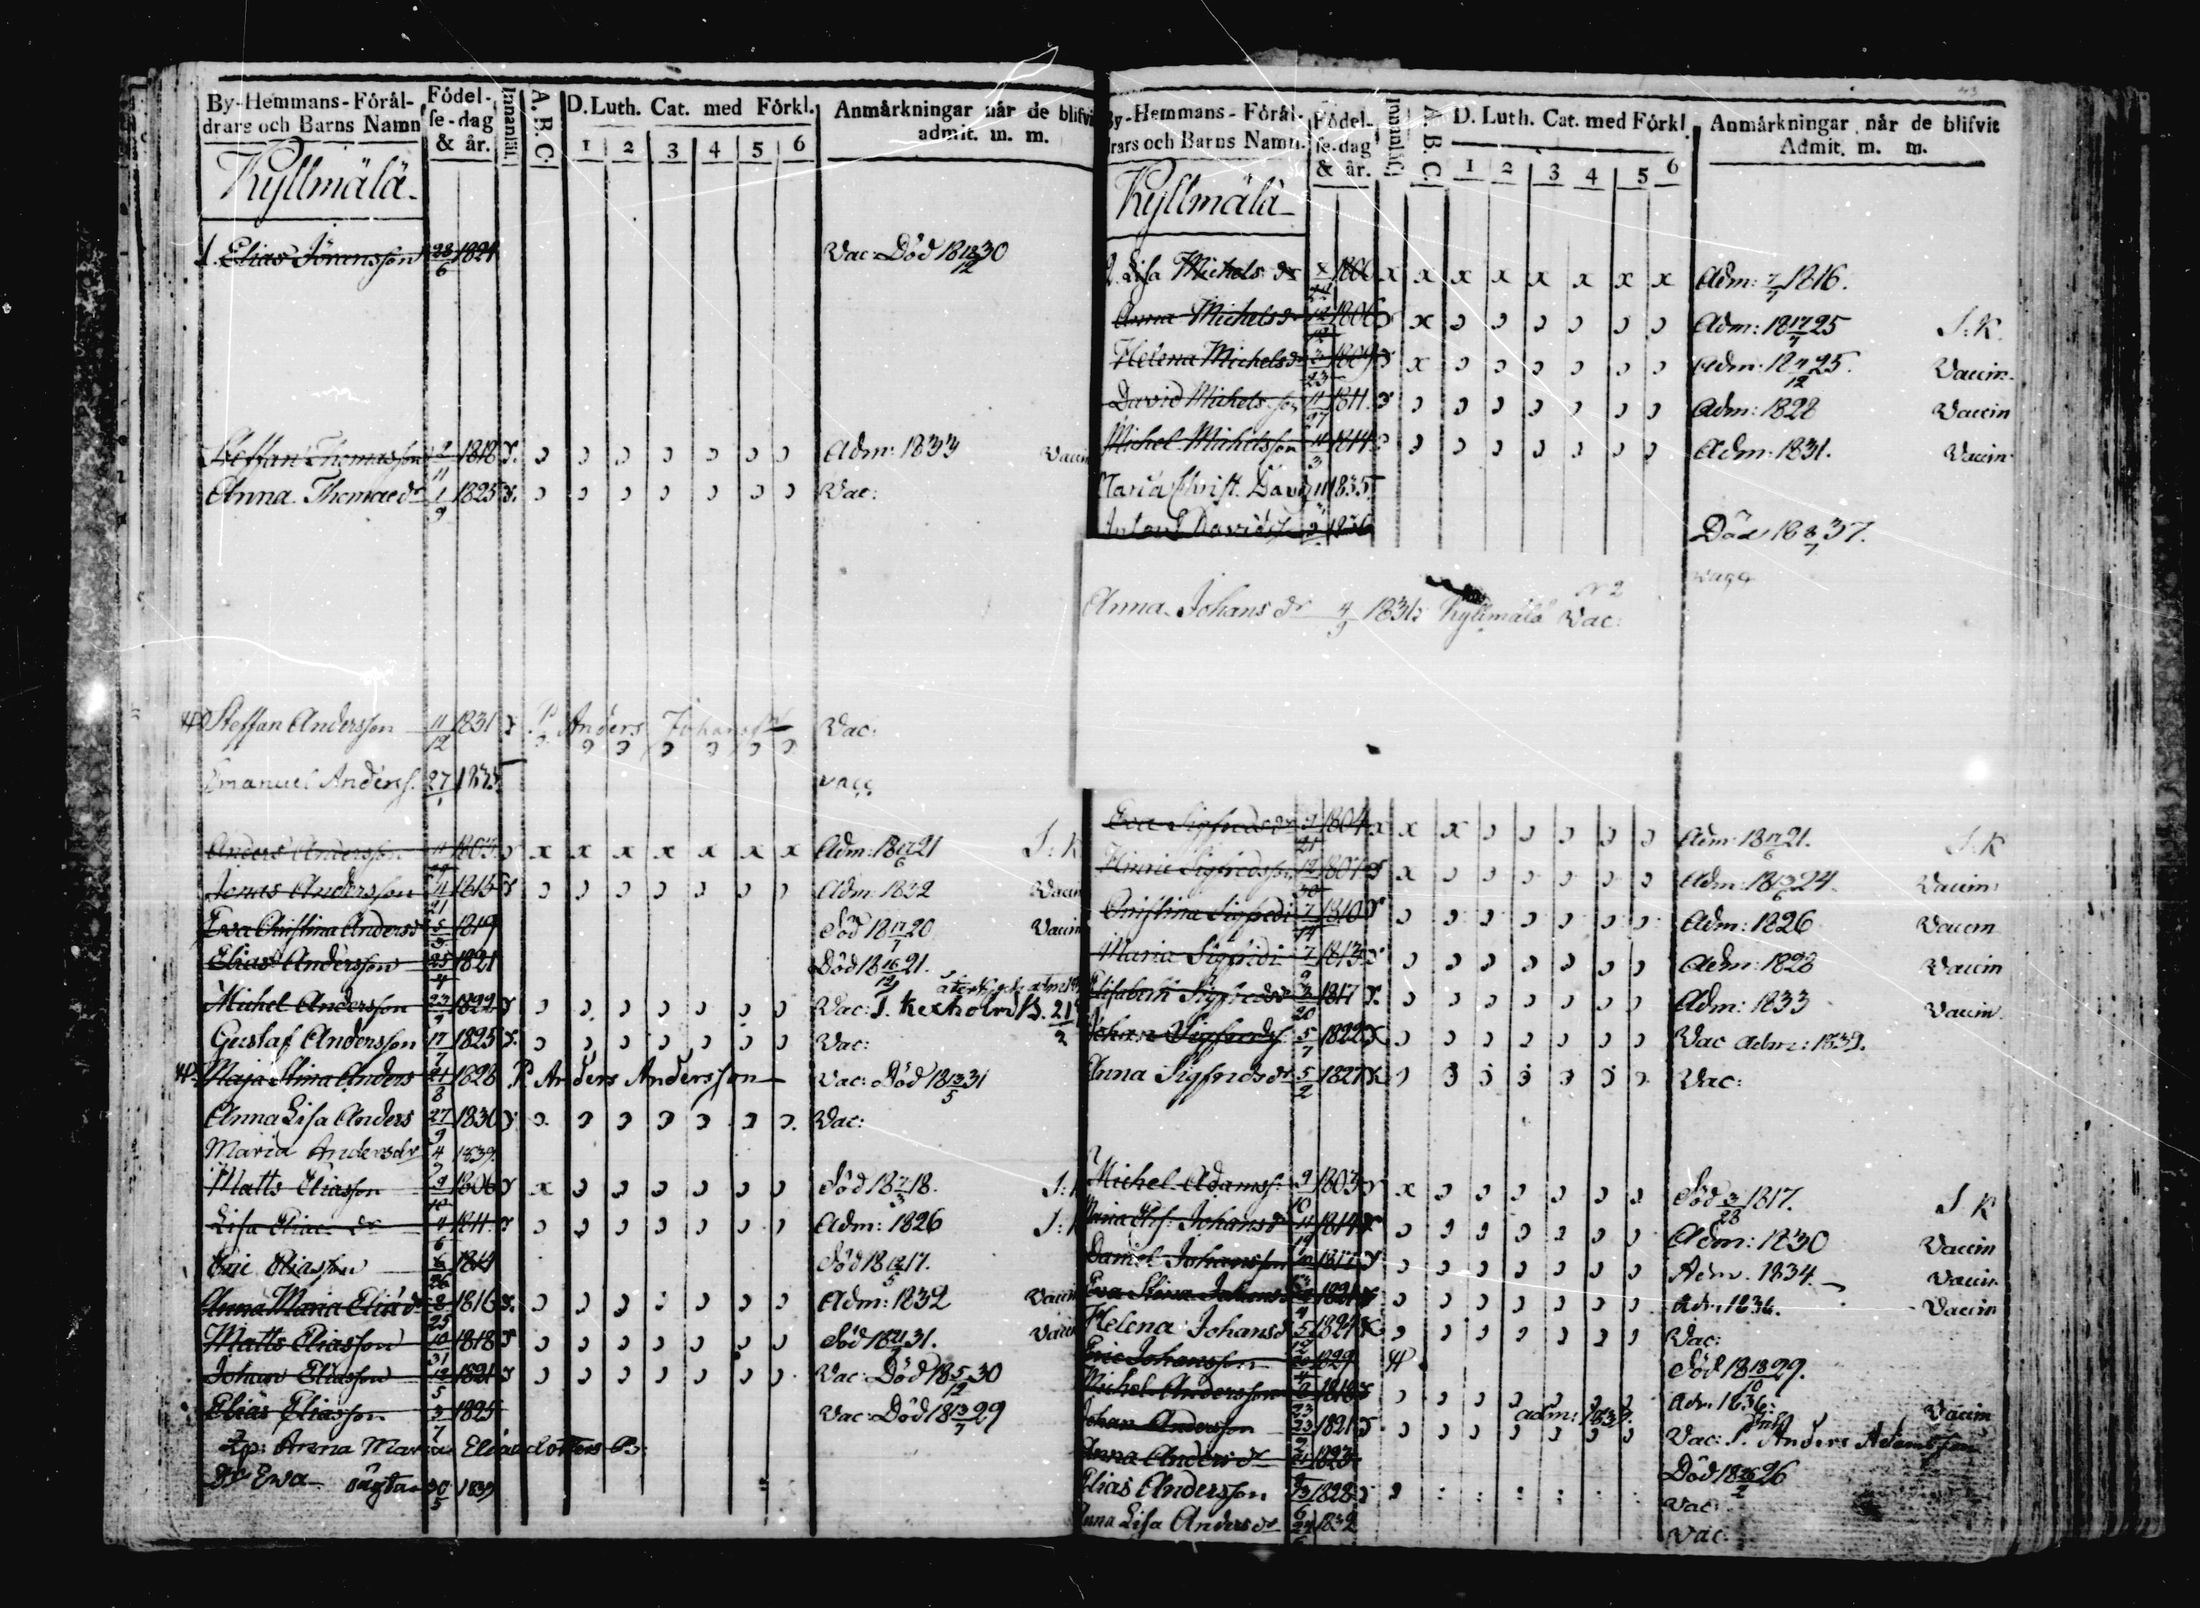 By-Hemmans-Föräl-
drars och Barns Namn
Födel-
se-dag
& år.
Innanläs.
A.B.C.
D. Luth. Cat. med Förkl.
1 2 3 4 5 6
Anmärkningar när de blifvit
admit. m. m.
Kyllmälä
1. Elias Jöransson 28/6 1821 Vac: Död 18 18/12 30
Steffan Thomasson 1818 Adm: 1833 Vaccin
Anna Thomaedr 1/9 1825 Vac:
Steffan Andersson 11/12 1831 P. Anders Johansson Vac:
Emanuel Anderss. 27/1 vacc
Anders Andersson Adm: 18 17/6 21 S: K
Jonas Andersson 1815 Adm: 1832 Vaccin
Eva Christina Andersd 1819 Död 18 17/7 20 Vaccin
Elias Andersson 25/4 1821 Död 18 16/12 21.
Michel Andersson 23/9 1822 Vac: T. Kexholm B. 21/2
Gustaf Andersson 17/7 1825 Vac:
Maja Stina Anders 21/8 1828 P. Anders Andersson Vac: Död 18 13/5 31
Anna Lisa Anders 27/9 1830 Vac:
Maria Andersdr 4 1839.
Matts Eliasson 9/10 1806 Död 18 7/3 18.
Lisa Eliae dr 1811 Adm: 1826
Eric Eliasson 6/26 1814 Död 18 17.
Anna Maria Eliæ dr 8/25 1816 Adm: 1832 Vaccin
Matts Eliasson 10/31 1818 Död 18 31. Vaccin
Johan Eliasson 12/5 1821 Vac: Död 18 5/12 30
Elias Eliasson 3/7 1825 Vac: Död 18 13/7 29
Anna Maria Eliaedotters B:
Dr Ewa oägta 30/5 1839
By-Hemmans-Föräl-
drars och Barns Namn.
Födel-
se-dag
& år.
Innanläs.
A.B.C.
D. Luth. Cat. med Förkl.
1 2 3 4 5 6
Anmärkningar när de blifvit
Admit. m. m.
Kyllmälä
Lisa Michels dr 1800 x x x x x x x x Adm: 7/7 1816.
Anna Michelsdr 12 1806 Adm: 18 17/7 25 S: K.
Helena Michelsdr 3/23 1809 Adm: 18 4/12 25. Vaccin.
David Michelsson 11/27 1811. Adm: 1828 Vaccin
Michel Michelsson 11/3 1814 Adm: 1831. Vaccin
Maria Christ. Davi 1835
Davids 1836 Död 18 8/7 37.
vacc
Anna Johans dr 4/9 Kyllmälä No 2 Vac:
Eva Sigfredsdr 1804 Adm: 18 17/6 21. S. K
Hinric Sigfredsson 12/30 1807 Adm: 18 13/6 24. Vaccin
Christina Sigfredi 7/14 1810 Adm: 1826 Vaccin
Maria Sigfridi 7/9 1813 Adm: 1828 Vaccin
Elisabeth Sigfredsdr 1817 Adm: 1833 Vaccin.
Johan Sigfredss. 5/7 1822 Vac adm: 1839.
Anna Sigfredsdr 5/2 1827 Vac:
Michel Adamss. 9/10 1803 Död 3/28 1817. S K
Maria Elis: Johansdr 11/19 1814 Adm: 1830 Vaccin
Daniel Johansson 1817 Adm. 1834. Vaccin
Eva Stina Johans 1821 Adm 1836. Vaccin
Helena Johansd 5 1824 Vac:
Eric Johansson 1829 Död 18 18/10 29.
Michel Andersson 1818 Adm. 1836. Vaccin
Johan Andersson 23 1821 adm: 1837. Vac: P. Anders Adamsson
Anna Andersdr 1823 Död 18 26/2 26
Elias Andersson 13/6 1828 Vac:
Anna Lisa Andersdr 1832 Vac: